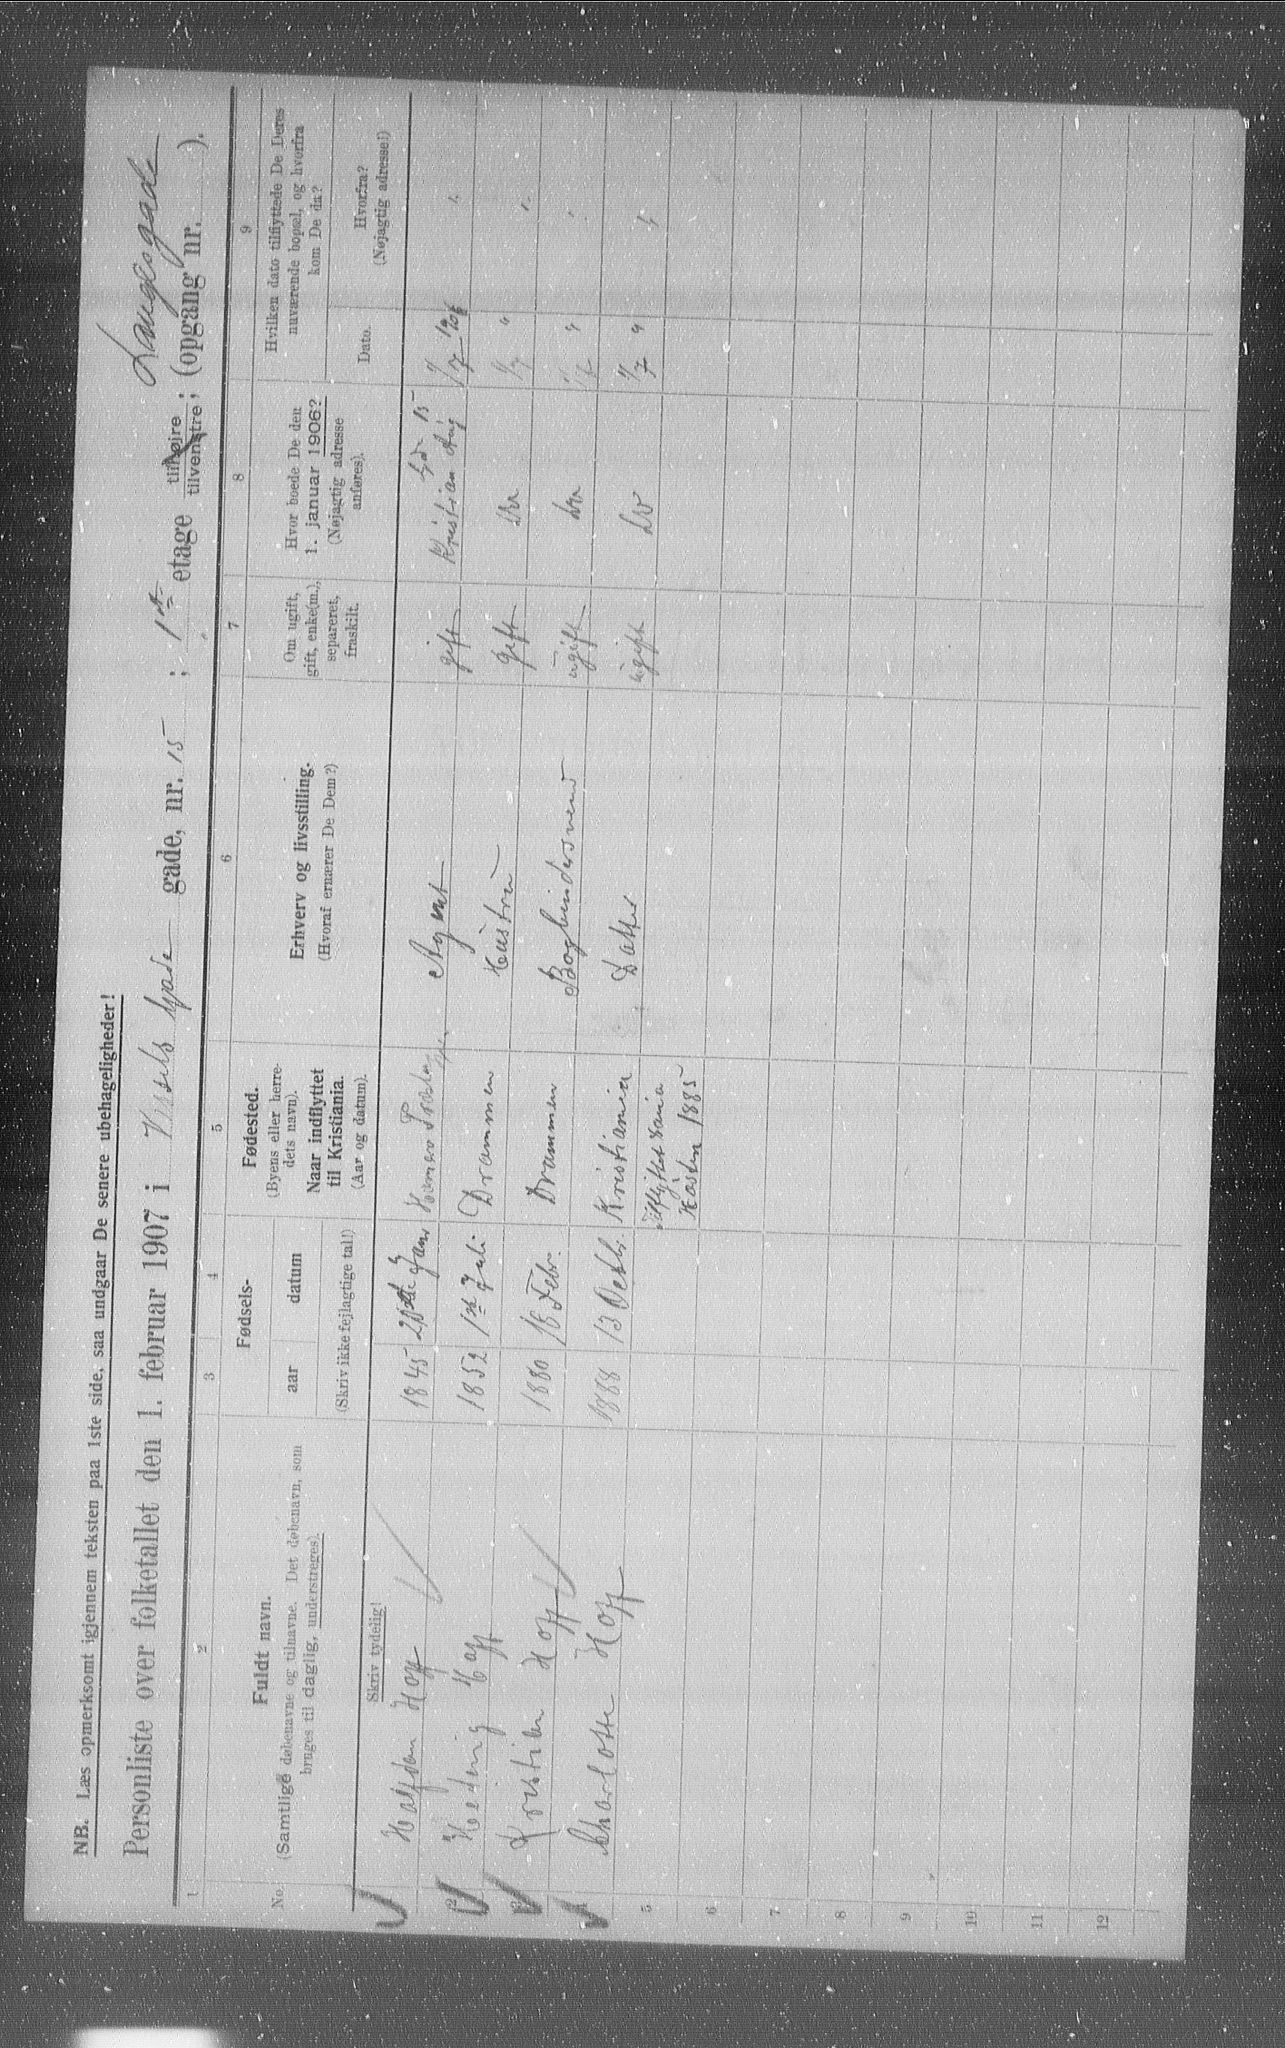 NB. Læs opmerksomt igjennem teksten paa 1ste side, saa undgaar De senere ubehageligheder!
Langesgade
Personliste over folketallet den 1. februar 1907 i Wessels gade gade, nr. 15 ; 1ste etage tilhøjre tilvenstre ; (opgang nr. ).
1 2 3 4 5 6 7 8 9
No. Fuldt navn.
(Samtlige døbenavne og tilnavne. Det døbenavn, som
bruges til daglig, understreges).
Skriv tydelig!
Fødsels-
aar datum
(Skriv ikke fejlagtige tal!)
Fødested.
(Byens eller herre-
dets navn).
Naar indflyttet
til Kristiania.
(Aar og datum).
Erhverv og livsstilling.
(Hvoraf ernærer De Dem?)
Om ugift,
gift, enke(m.),
separeret,
fraskilt.
Hvor boede De den
1. januar 1906?
(Nøjagtig adresse
anføres).
Hvilken dato tilflyttede De Deres
nuværende bopæl, og hvorfra
kom De da?
Dato.
Hvorfra?
(Nøjagtig adresse!)
1 Halfdan Hoff 1845 Janr Agent gift Kristian Aug 15 1/7 1906
2 Hedvig Hoff 1852 1ste Juli Drammen Hustru gift Do 1/7 "
3 Kristian Hoff 1880 16 Febr. Drammen Bogbindersvend ugift Do 1/7 "
4 Charlotte Hoff 1888 13 Octbr. Kristiania Datter ugift Do 1/7 "
5 Høsten 1885
6
7
8
9
10
11
12